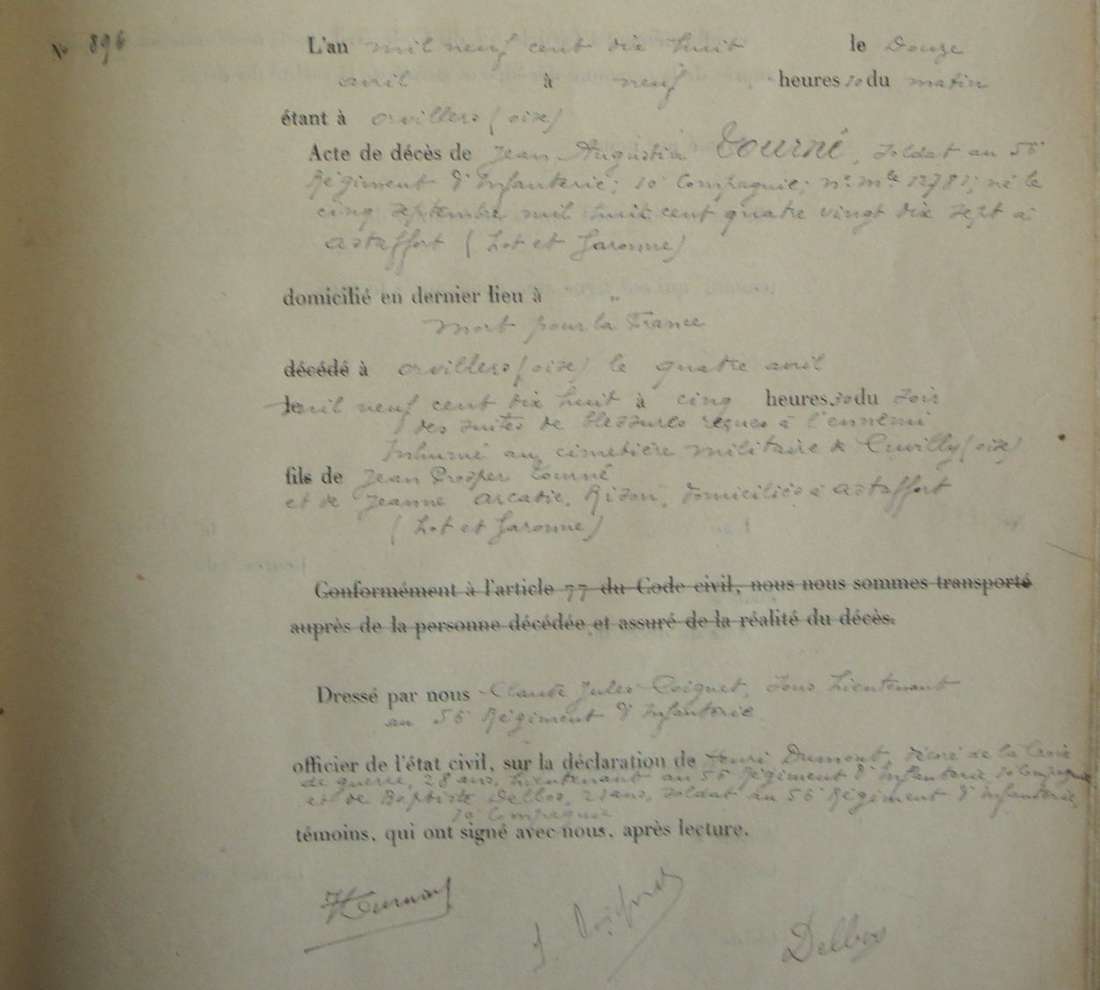 No 896
L'an mil neuf cent dix huit le Douze
avril à neuf heures 30 du matin
étant à Orvillers (oise)
Acte de décès de Jean Augustin TOURNÉ, soldat au 56e
Régiment d'Infanterie; 10e Compagnie; no mle 12781; né le
cinq septembre mil huit cent quatre vingt dix sept à
Astaffort (Lot et Garonne)
domicilié en dernier lieu à "
Mort pour la France
décédé à Orvillers (oise) le quatre avril
le mil neuf cent dix huit à cinq heures 30 du soir
des suites de blessures reçues à l'ennemi
Inhumé au cimetière militaire de Cuvilly (oise)
fils de Jean Prosper Tourné
et de Jeanne Arcatie, Rizon, domiciliés à Astaffort
(Lot et Garonne)
Conformément à l'article 77 du Code civil, nous nous sommes transporté
auprès de la personne décédée et assuré de la réalité du décès.
Dressé par nous Claude Jules Coignet, Sous Lieutenant
au 56e Régiment d'Infanterie
officier de l'état civil, sur la déclaration de Henri Dumont, décoré de la Croix
de guerre, 28 ans, Lieutenant au 56e Régiment d'Infanterie 10e Compagnie
et de Baptiste Delbos, 21 ans, soldat au 56e Régiment d'Infanterie,
10e Compagnie
témoins, qui ont signé avec nous, après lecture.
HDumont
J. Coignet
Delbos